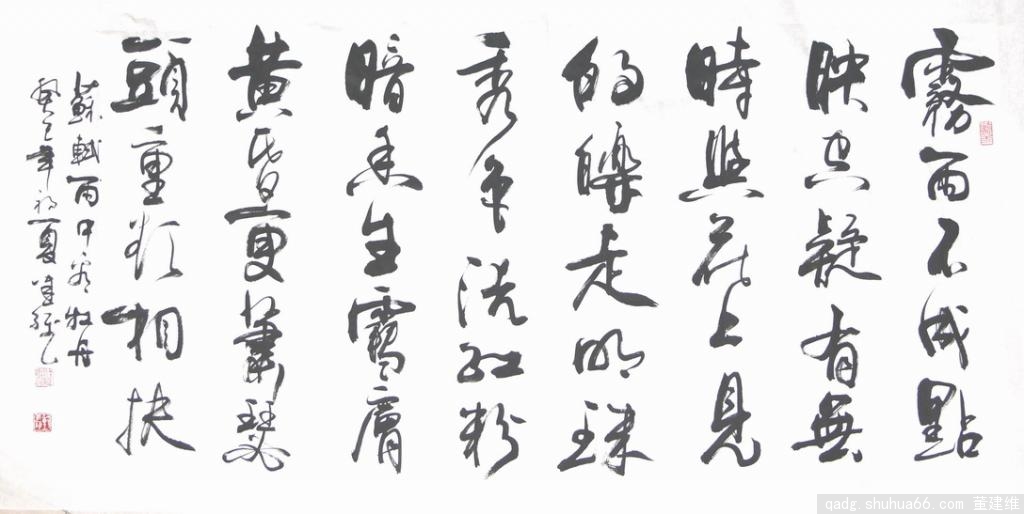 霧雨不成點
映空疑有無
時與花上見
的皪走明珠
秀色洗紅粉
暗香生雪膚
黃昏更蕭瑟
頭重欲相扶
蘇軾雨中看牡丹
癸巳年初夏建維
qadg.shuhua66.com 董建维